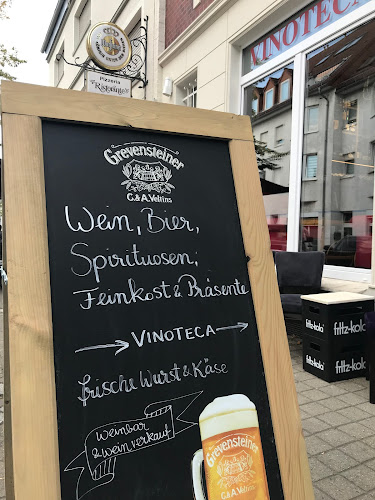 Pizzeria
VINOTECA
Grevensteiner
C. & A. Veltins
Wein, Bier,
Spirituosen;
Feinkost & Präsente
→ VINOTECA →
frische Wurst & Käse
Weinbar
& weinverkauf
Grevensteiner
C. & A. Veltins
fritz-kola
fritz-kola
fritz-kola
fritz-kola